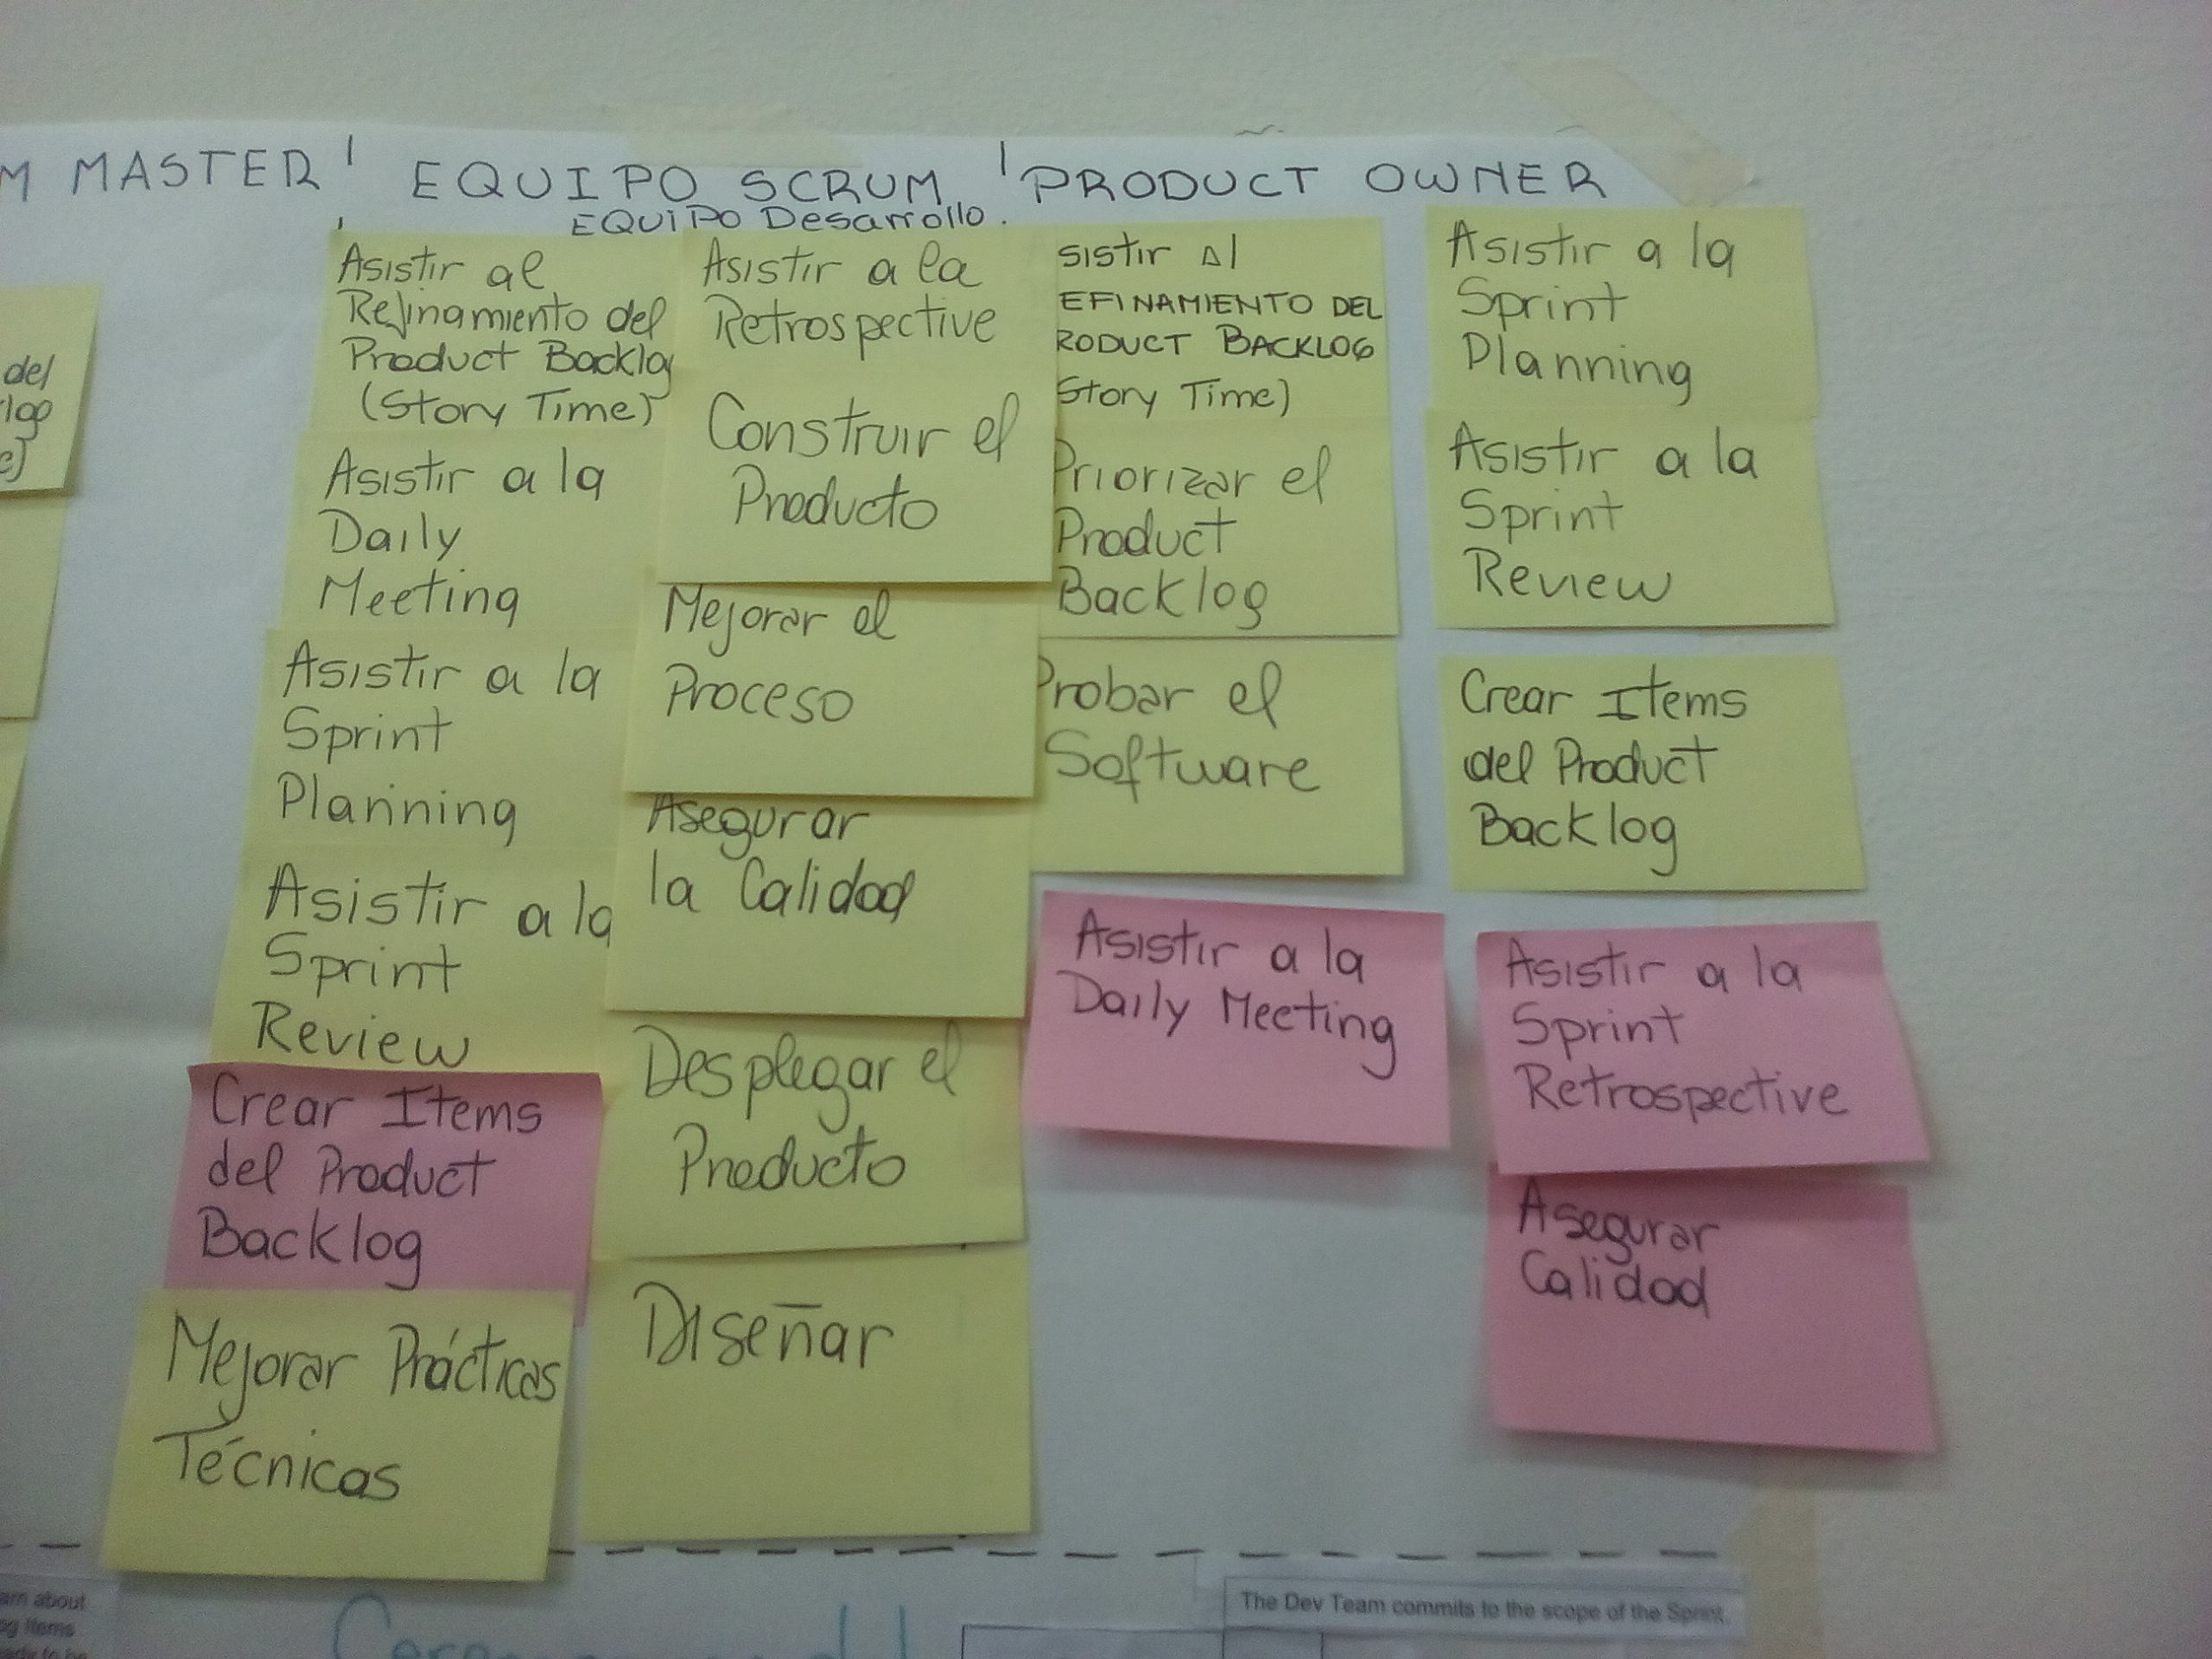 M MASTER EQUIPO SCRUM PRODUCT OWNER
EQUIPO Desarrollo.
del
Asistir al
Refinamiento del
Product Backlog
(Story Time)
Asistir a la
Daily
Meeting
Asistir a la
Sprint
Planning
Asistir a la
Sprint
Review
Crear Items
del Product
Backlog
Mejorar Prácticas
Técnicas
Asistir a la
Retrospective
Construir el
Producto
Mejorar el
Proceso
Asegurar
la Calidad
Desplegar el
Producto
Diseñar
sistir Al
EFINAMIENTO DEL
RODUCT BACKLOG
Story Time)
Priorizar el
Product
Backlog
Probar el
Software
Asistir a la
Daily Meeting
Asistir a la
Sprint
Planning
Asistir a la
Sprint
Review
Crear Items
del Product
Backlog
Asistir a la
Sprint
Retrospective
Asegurar
Calidad
about
Items
The Dev Team commits to the scope of the Sprint.